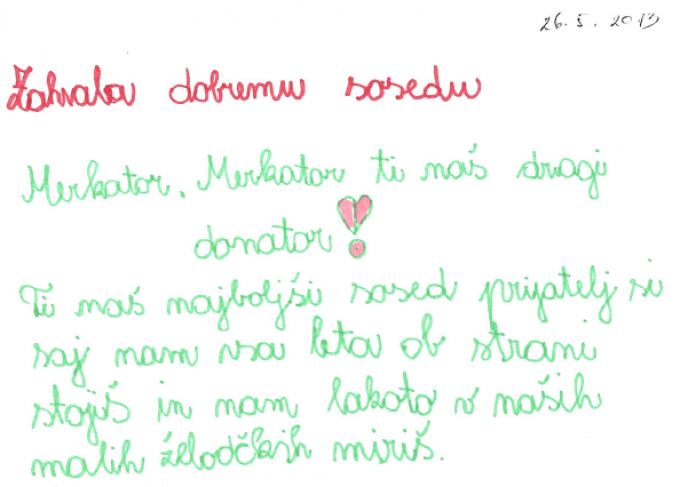 26. 5. 2013
Zahvala dobremu sosedu
Merkator, Merkator ti naš dragi
donator!
Ti naš najboljši sosed prijatelj si
saj nam vsa leta ob strani
stojiš in nam lakoto v naših
malih želodčkih miriš.